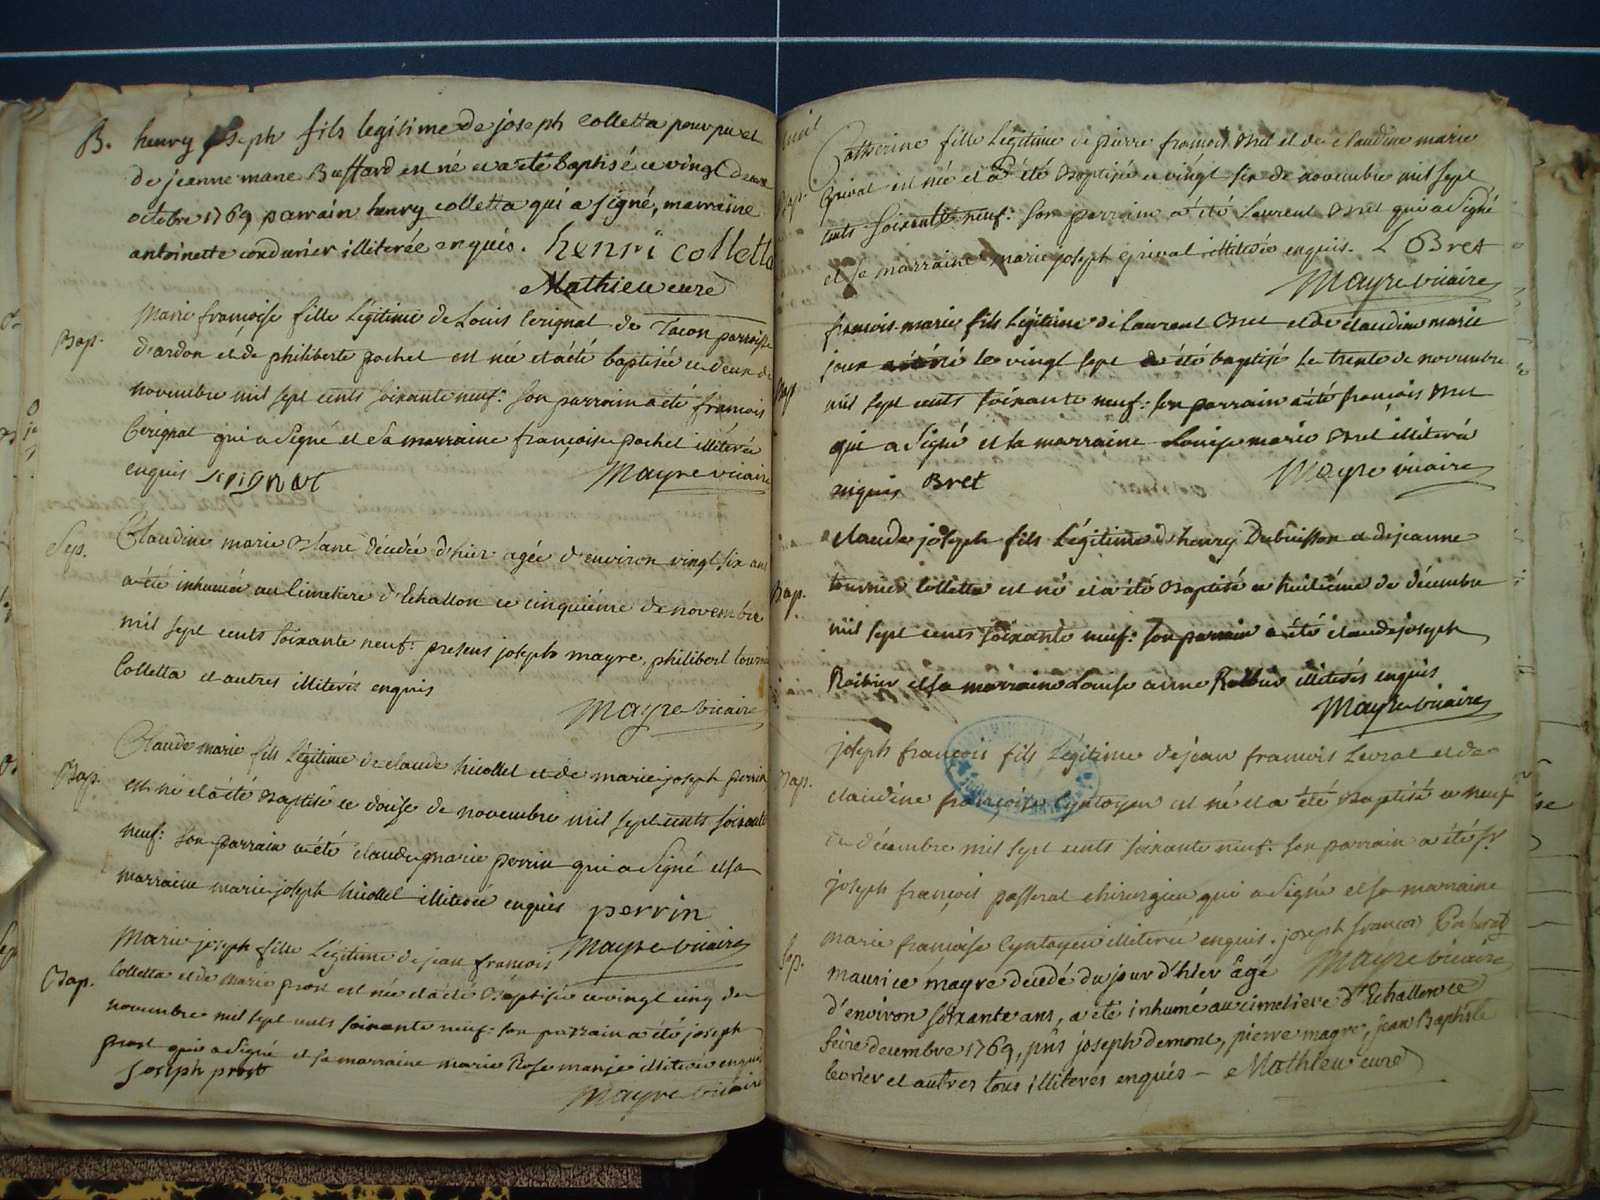 B. henry joseph fils legitime de joseph colletta pourpu et
de jeanne marie Buffard est né et a été baptisé ce vingt deux
octobre 1769 parrain henry colletta qui a signé, marraine
antoinette condurier illiterée enquis. henri colletta
Mathieu curé
Bap. Marie françoise fille Légitime de Louis Cerignat de Tacon parroisse
d'ardon et de philiberte pochet est née et a été baptisée ce deux de
novembre mil sept cents soixante neuf: son parrain a été françois
Cérignat qui a Signé et Sa marraine françoise pochet illiterée
enquis serignat Mayre vicaire
Sep. Claudine marie décédée d'hier agée d'environ vingt six ans
a été inhumée au Cimetiere d'Echallon ce cinquiéme de novembre
mil sept cents soixante neuf: presens joseph mayre, philibert tournier
Colletta et autres illiterés enquis
Mayre vicaire
Bap. Claude marie fils Légitime de claude Nicollet et de marie joseph perrin
est né et a été Baptisé ce douse de novembre mil sept cents soixante
neuf: son parrain a été claude marie perrin qui a Signé et sa
marraine marie joseph Nicollet illiterée enquis perrin
Mayre vicaire
Bap. Marie joseph fille Légitime de jean françois
Colletta et de Marie prost est née et a été Baptisée ce vingt cinq de
novembre mil sept cents soixante neuf: son parrain a été joseph
prost qui a Signé et sa marraine marie Rose illiterée enquis
joseph prost Mayre vicaire
Catherine fille Légitime de pierre françois Bret et de claudine marie
Grival est née et a été Baptisée ce vingt six de novembre mil sept
cents soixante neuf: Son parrain a été Laurent Bret qui a Signé
et sa marraine marie joseph grival illiterée enquis. L Bret
Mayre vicaire
Bap. françois marie fils Légitime de Laurent Bret et de claudine marie
jour né le vingt sept a été baptisé le trente de novembre
mil sept cents soixante neuf: son parrain a été françois Bret
qui a Signé et sa marraine Louise marie Bret illiterée
enquis Bret Mayre vicaire
Bap. claude joseph fils Légitime d'henry Dubuisson et de jeanne
tournier Colletta est né et a été Baptisé ce huitième de décembre
mil sept cents soixante neuf: son parrain a été claude joseph
et sa marraine Louise anne illiterés enquis
Mayre vicaire
Bap. joseph françois fils Légitime de jean françois Levrat et de
claudine françoise est né et a été Baptisé ce neuf
de décembre mil sept cents soixante neuf: son parrain a été Sr.
joseph françois passerat chirurgien qui a Signé et sa marraine
marie françoise illiterée enquis. joseph françois
Mayre vicaire
Sep. maurice mayre décédé du jour d'hier âgé
d'environ soixante ans, a été inhumé au cimetiere d'Echallon ce
seize decembre 1769, pnts joseph demont, pierre magre, jean Baptiste
levrier et autres tous illiterés enquis – Mathieu curé